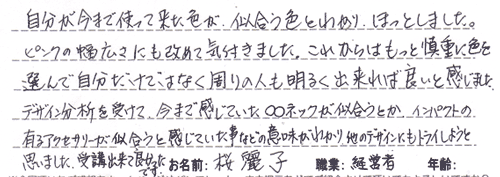 自分が今まで使って来た色が、似合う色とわかり、ほっとしました。
ピンクの幅広さにも改めて気付きました。これからはもっと慎重に色を
選んで自分だけではなく周りの人も明るく出来れば良いと感じました
デザイン分析を受けて、今まで感じていた○○ネックが似合うとか、インパクトの
有るアクセサリーが似合うと感じていた事などの意味がわかり他のデザインにもトライしようと
思いました、受講出来て良かったです。 お名前: 桜 麗子 職業: 経営者 年齢: